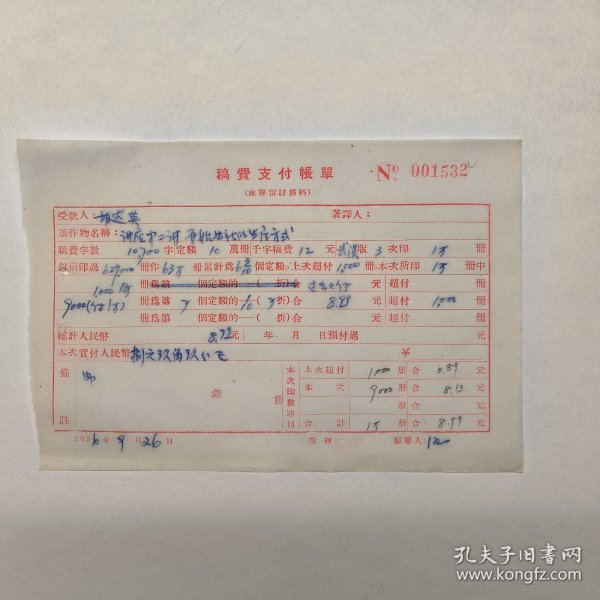 稿費支付帳單 No 001532
(此聯留財務科)
受款人 著譯人:
著作物名稱: 講座第二講 原始公社的生產方式
稿費字數 10,700 字定額 10 萬冊千字稿費 12 元 武漢版 3 次印 1万 冊
以前印過 629,000 冊作 63万 冊累計爲 個定額,上次超付 1,000 冊本次所印 1万 冊中
1,000 冊爲第 個定額的 ( 折)合 元 超付 冊
9,000 (付1万) 冊爲第 7 個定額的 /10 ( 折)合 8.99 元 超付 1,000 冊
冊爲第 個定額的 ( 折)合 元 超付 冊
總計人民幣 元 年 月 日預付過 元
本次實付人民幣 捌元玖角玖分正 ¥
備註
本次印數冲回
上次超付 1,000 冊合 0.89 元
本次 9,000 冊合 8.10 元
冊合 元
合計 1万 冊合 8.99 元
1956年9月26日 覆核 製單人:
孔夫子旧書网
www.kongfz.com